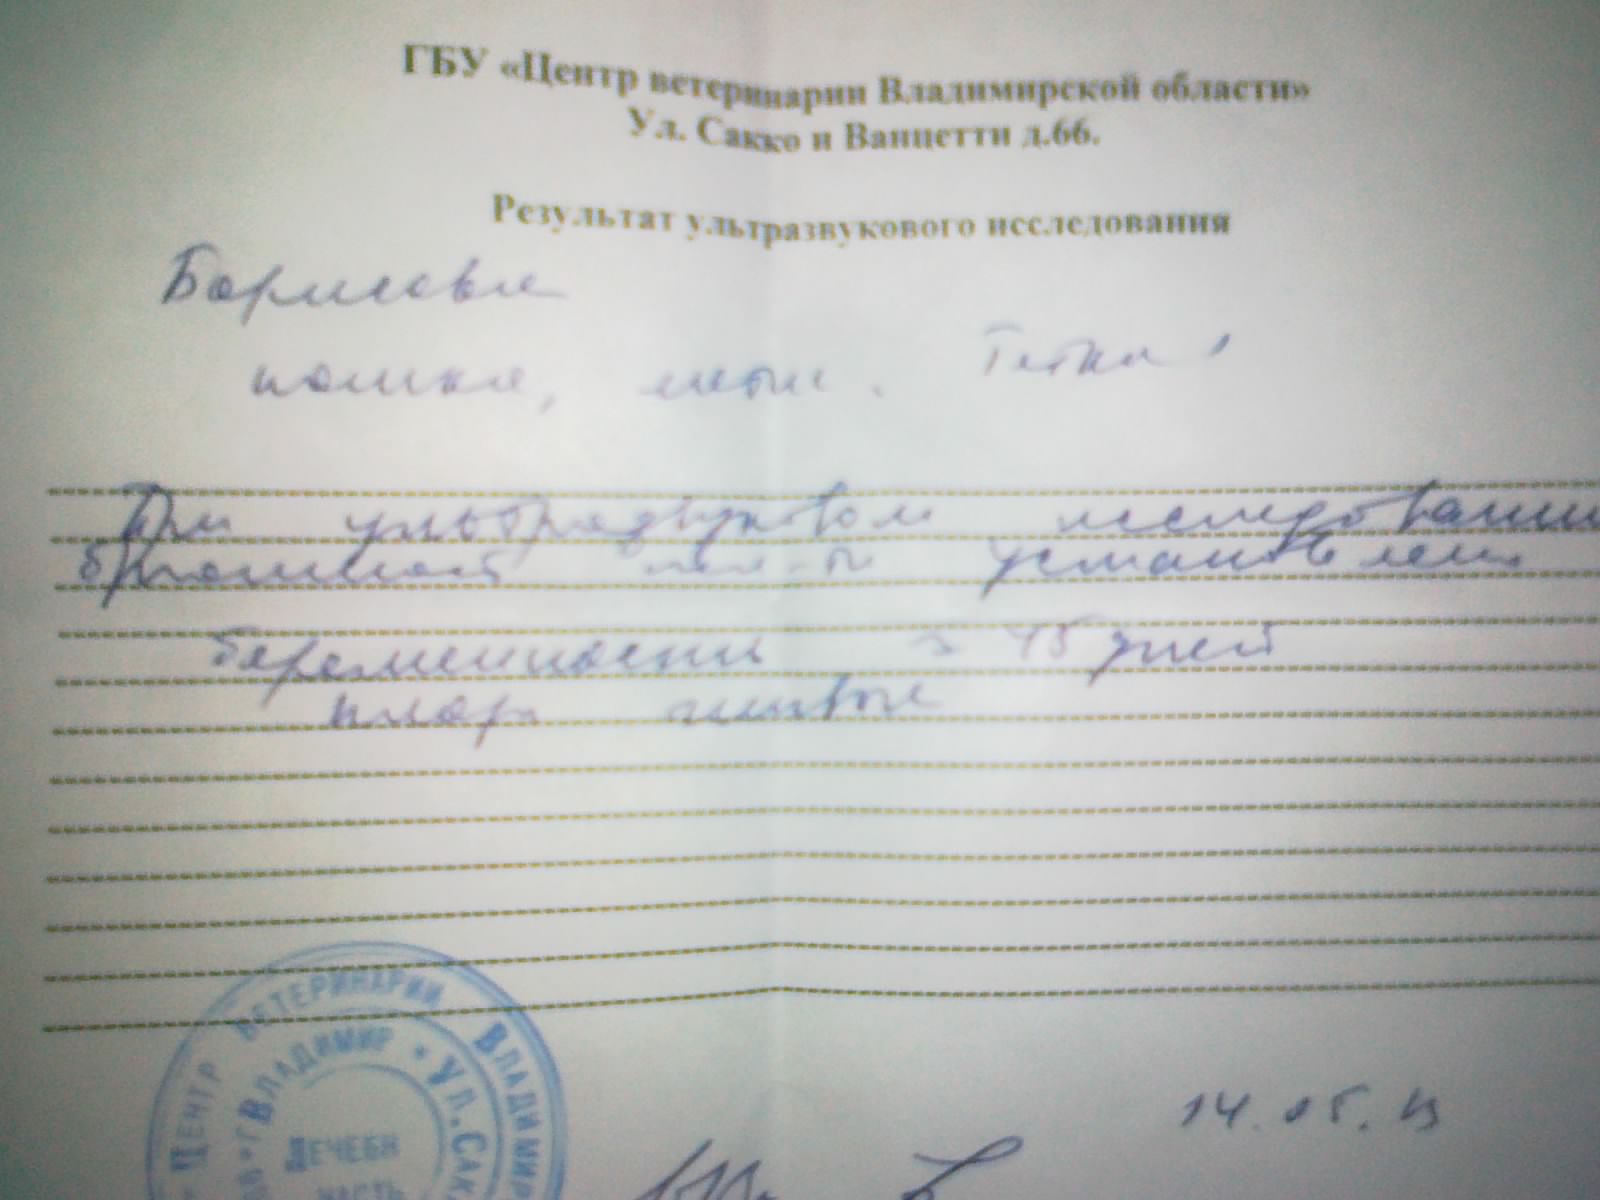 ГБУ «Центр ветеринарии Владимирской области»
Ул. Сакко и Ванцетти д.66.
Результат ультразвукового исследования
Борисова
кошка,
При ультразвуковом исследовании
брюшной установлена
беременность 45 дней
живые
14.05.13
ЦЕНТР ВЕТЕРИНАРИИ ВЛАДИМИР
Г ВЛАДИМИР * УЛ.САК
ЛЕЧЕБН
ЧАСТЬ